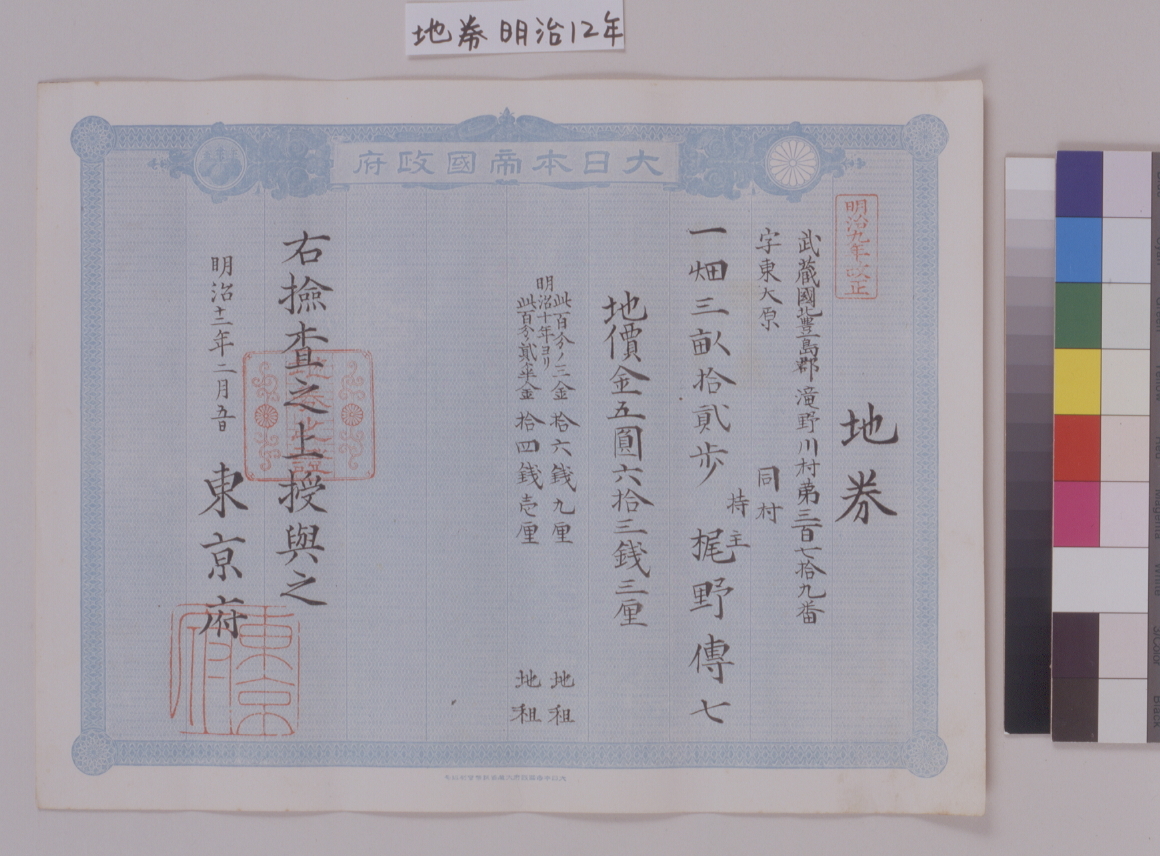 地券 明治12年
大日本帝國政府
明治九年改正
地券
武蔵國北豊島郡滝野川村第三百七拾九番
字東大原
同村
持主
一畑三畝拾貳歩 梶野傳七
地價金五圓六拾三錢三厘
此百分ノ三金 拾六錢九厘 地租
明治十年ヨリ
此百分貳半金 拾四錢壱厘 地租
右撿査之上授與之
明治十二年二月五日
東京府
地券之證
東京府